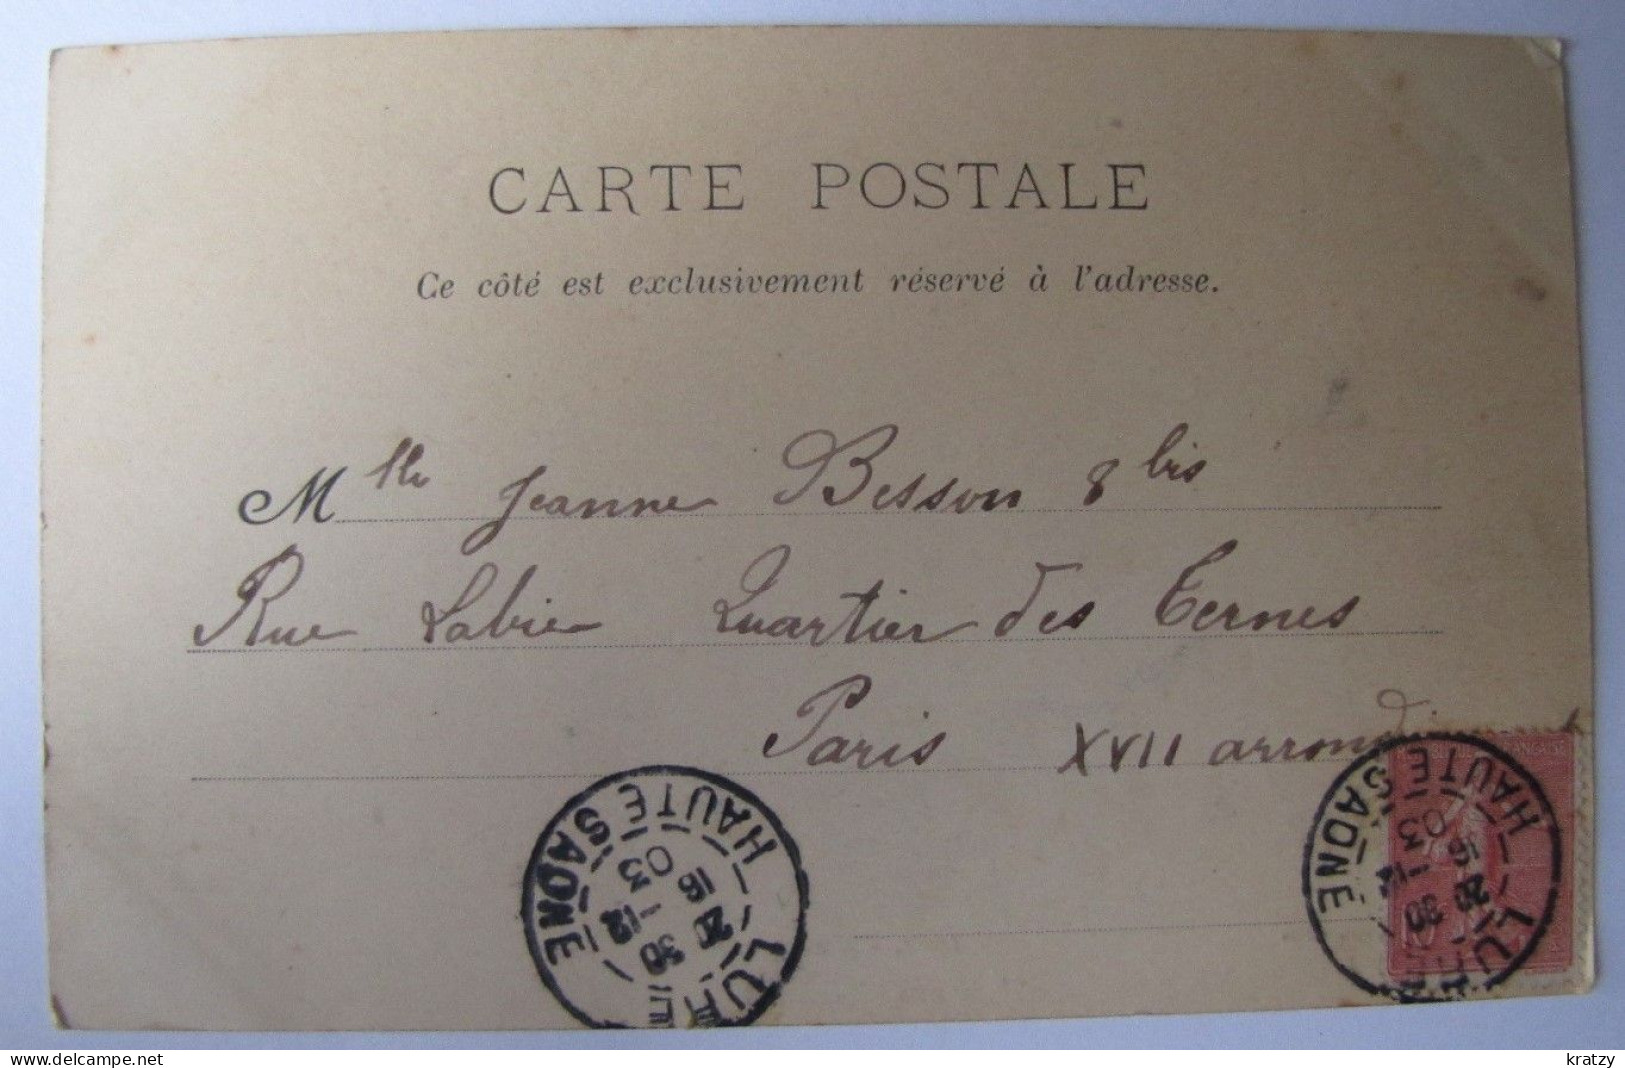 CARTE POSTALE
Ce côté est exclusivement réservé à l'adresse.
Mlle Jeanne Besson 8 bis
Rue Labie Quartier des Ternes
Paris XVII arrondi
LURE HAUTE SAONE
30 12 03
LURE HAUTE SAONE
30 12 03
kratzy
delcampe.net